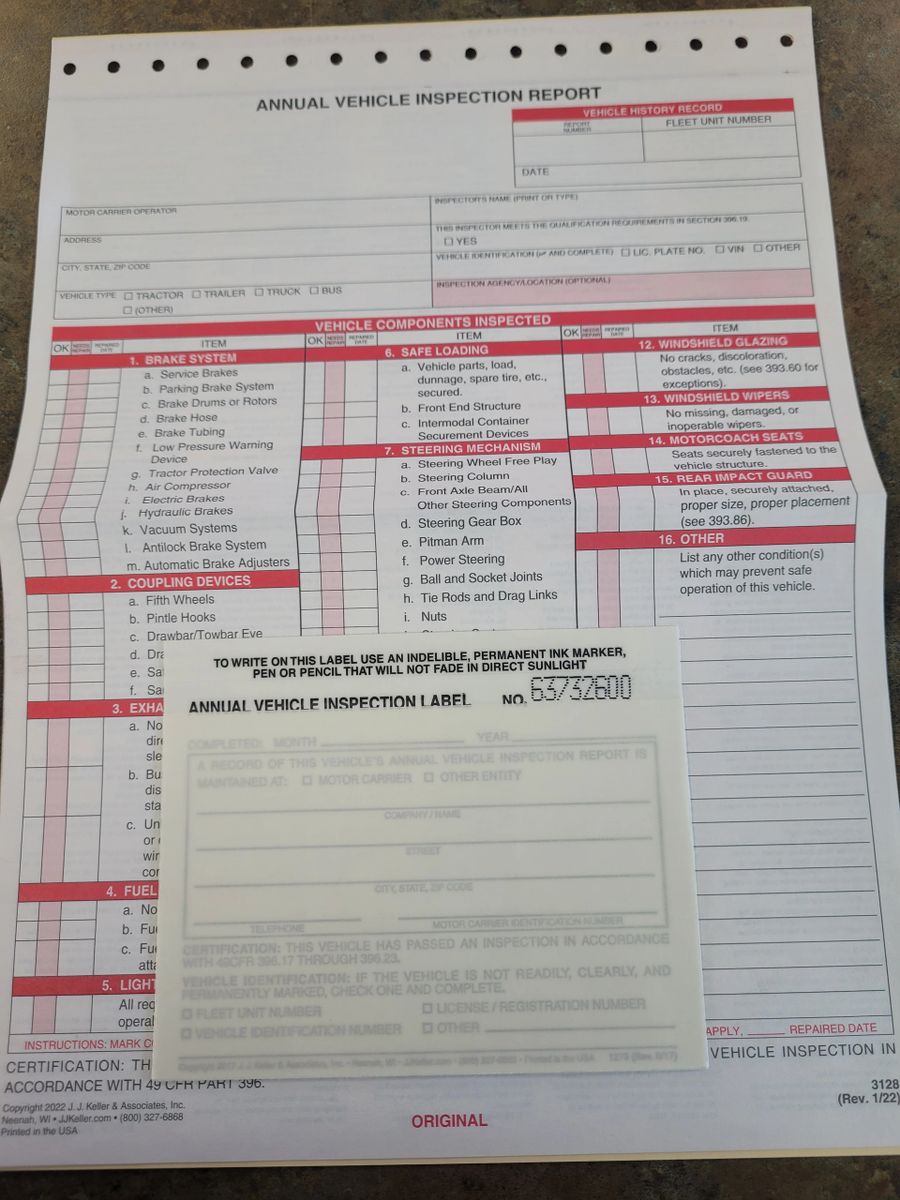 ANNUAL VEHICLE INSPECTION REPORT
VEHICLE HISTORY RECORD
REPORT NUMBER
FLEET UNIT NUMBER
DATE
MOTOR CARRIER OPERATOR
ADDRESS
CITY, STATE, ZIP CODE
VEHICLE TYPE ☐ TRACTOR ☐ TRAILER ☐ TRUCK ☐ BUS
☐ (OTHER)
INSPECTOR'S NAME (PRINT OR TYPE)
THIS INSPECTOR MEETS THE QUALIFICATION REQUIREMENTS IN SECTION 396.19.
☐ YES
VEHICLE IDENTIFICATION (✓ AND COMPLETE) ☐ LIC. PLATE NO. ☐ VIN ☐ OTHER
INSPECTION AGENCY/LOCATION (OPTIONAL)
VEHICLE COMPONENTS INSPECTED
OK NEEDS REPAIR REPAIRED DATE ITEM
1. BRAKE SYSTEM
a. Service Brakes
b. Parking Brake System
c. Brake Drums or Rotors
d. Brake Hose
e. Brake Tubing
f. Low Pressure Warning
Device
g. Tractor Protection Valve
h. Air Compressor
i. Electric Brakes
j. Hydraulic Brakes
k. Vacuum Systems
l. Antilock Brake System
m. Automatic Brake Adjusters
2. COUPLING DEVICES
a. Fifth Wheels
b. Pintle Hooks
c. Drawbar/Towbar Eye
d. Dra
e. Sa
f. Sa
3. EXHA
a. No
dire
sle
b. Bu
dis
sta
c. Un
or
wir
cor
4. FUEL
a. No
b. Fu
c. Fu
atta
5. LIGHT
All req
operal
OK NEEDS REPAIR REPAIRED DATE ITEM
6. SAFE LOADING
a. Vehicle parts, load,
dunnage, spare tire, etc.,
secured.
b. Front End Structure
c. Intermodal Container
Securement Devices
7. STEERING MECHANISM
a. Steering Wheel Free Play
b. Steering Column
c. Front Axle Beam/All
Other Steering Components
d. Steering Gear Box
e. Pitman Arm
f. Power Steering
g. Ball and Socket Joints
h. Tie Rods and Drag Links
i. Nuts
OK NEEDS REPAIR REPAIRED DATE ITEM
12. WINDSHIELD GLAZING
No cracks, discoloration,
obstacles, etc. (see 393.60 for
exceptions).
13. WINDSHIELD WIPERS
No missing, damaged, or
inoperable wipers.
14. MOTORCOACH SEATS
Seats securely fastened to the
vehicle structure.
15. REAR IMPACT GUARD
In place, securely attached,
proper size, proper placement
(see 393.86).
16. OTHER
List any other condition(s)
which may prevent safe
operation of this vehicle.
TO WRITE ON THIS LABEL USE AN INDELIBLE, PERMANENT INK MARKER,
PEN OR PENCIL THAT WILL NOT FADE IN DIRECT SUNLIGHT
ANNUAL VEHICLE INSPECTION LABEL NO. 63732600
COMPLETED: MONTH YEAR
A RECORD OF THIS VEHICLE'S ANNUAL VEHICLE INSPECTION REPORT IS
MAINTAINED AT: ☐ MOTOR CARRIER ☐ OTHER ENTITY
COMPANY / NAME
STREET
CITY, STATE, ZIP CODE
TELEPHONE MOTOR CARRIER IDENTIFICATION NUMBER
CERTIFICATION: THIS VEHICLE HAS PASSED AN INSPECTION IN ACCORDANCE
WITH 49CFR 396.17 THROUGH 396.23.
VEHICLE IDENTIFICATION: IF THE VEHICLE IS NOT READILY, CLEARLY, AND
PERMANENTLY MARKED, CHECK ONE AND COMPLETE.
☐ FLEET UNIT NUMBER ☐ LICENSE / REGISTRATION NUMBER
☐ VEHICLE IDENTIFICATION NUMBER ☐ OTHER
Copyright 2017 J. J. Keller & Associates, Inc. • Neenah, WI • JJKeller.com • (800) 327-6868 • Printed in the USA
INSTRUCTIONS: MARK CO
APPLY, REPAIRED DATE
CERTIFICATION: TH
VEHICLE INSPECTION IN
ACCORDANCE WITH 49 CFR PART 396.
Copyright 2022 J. J. Keller & Associates, Inc.
Neenah, WI • JJKeller.com • (800) 327-6868
Printed in the USA
ORIGINAL
3128
(Rev. 1/22)